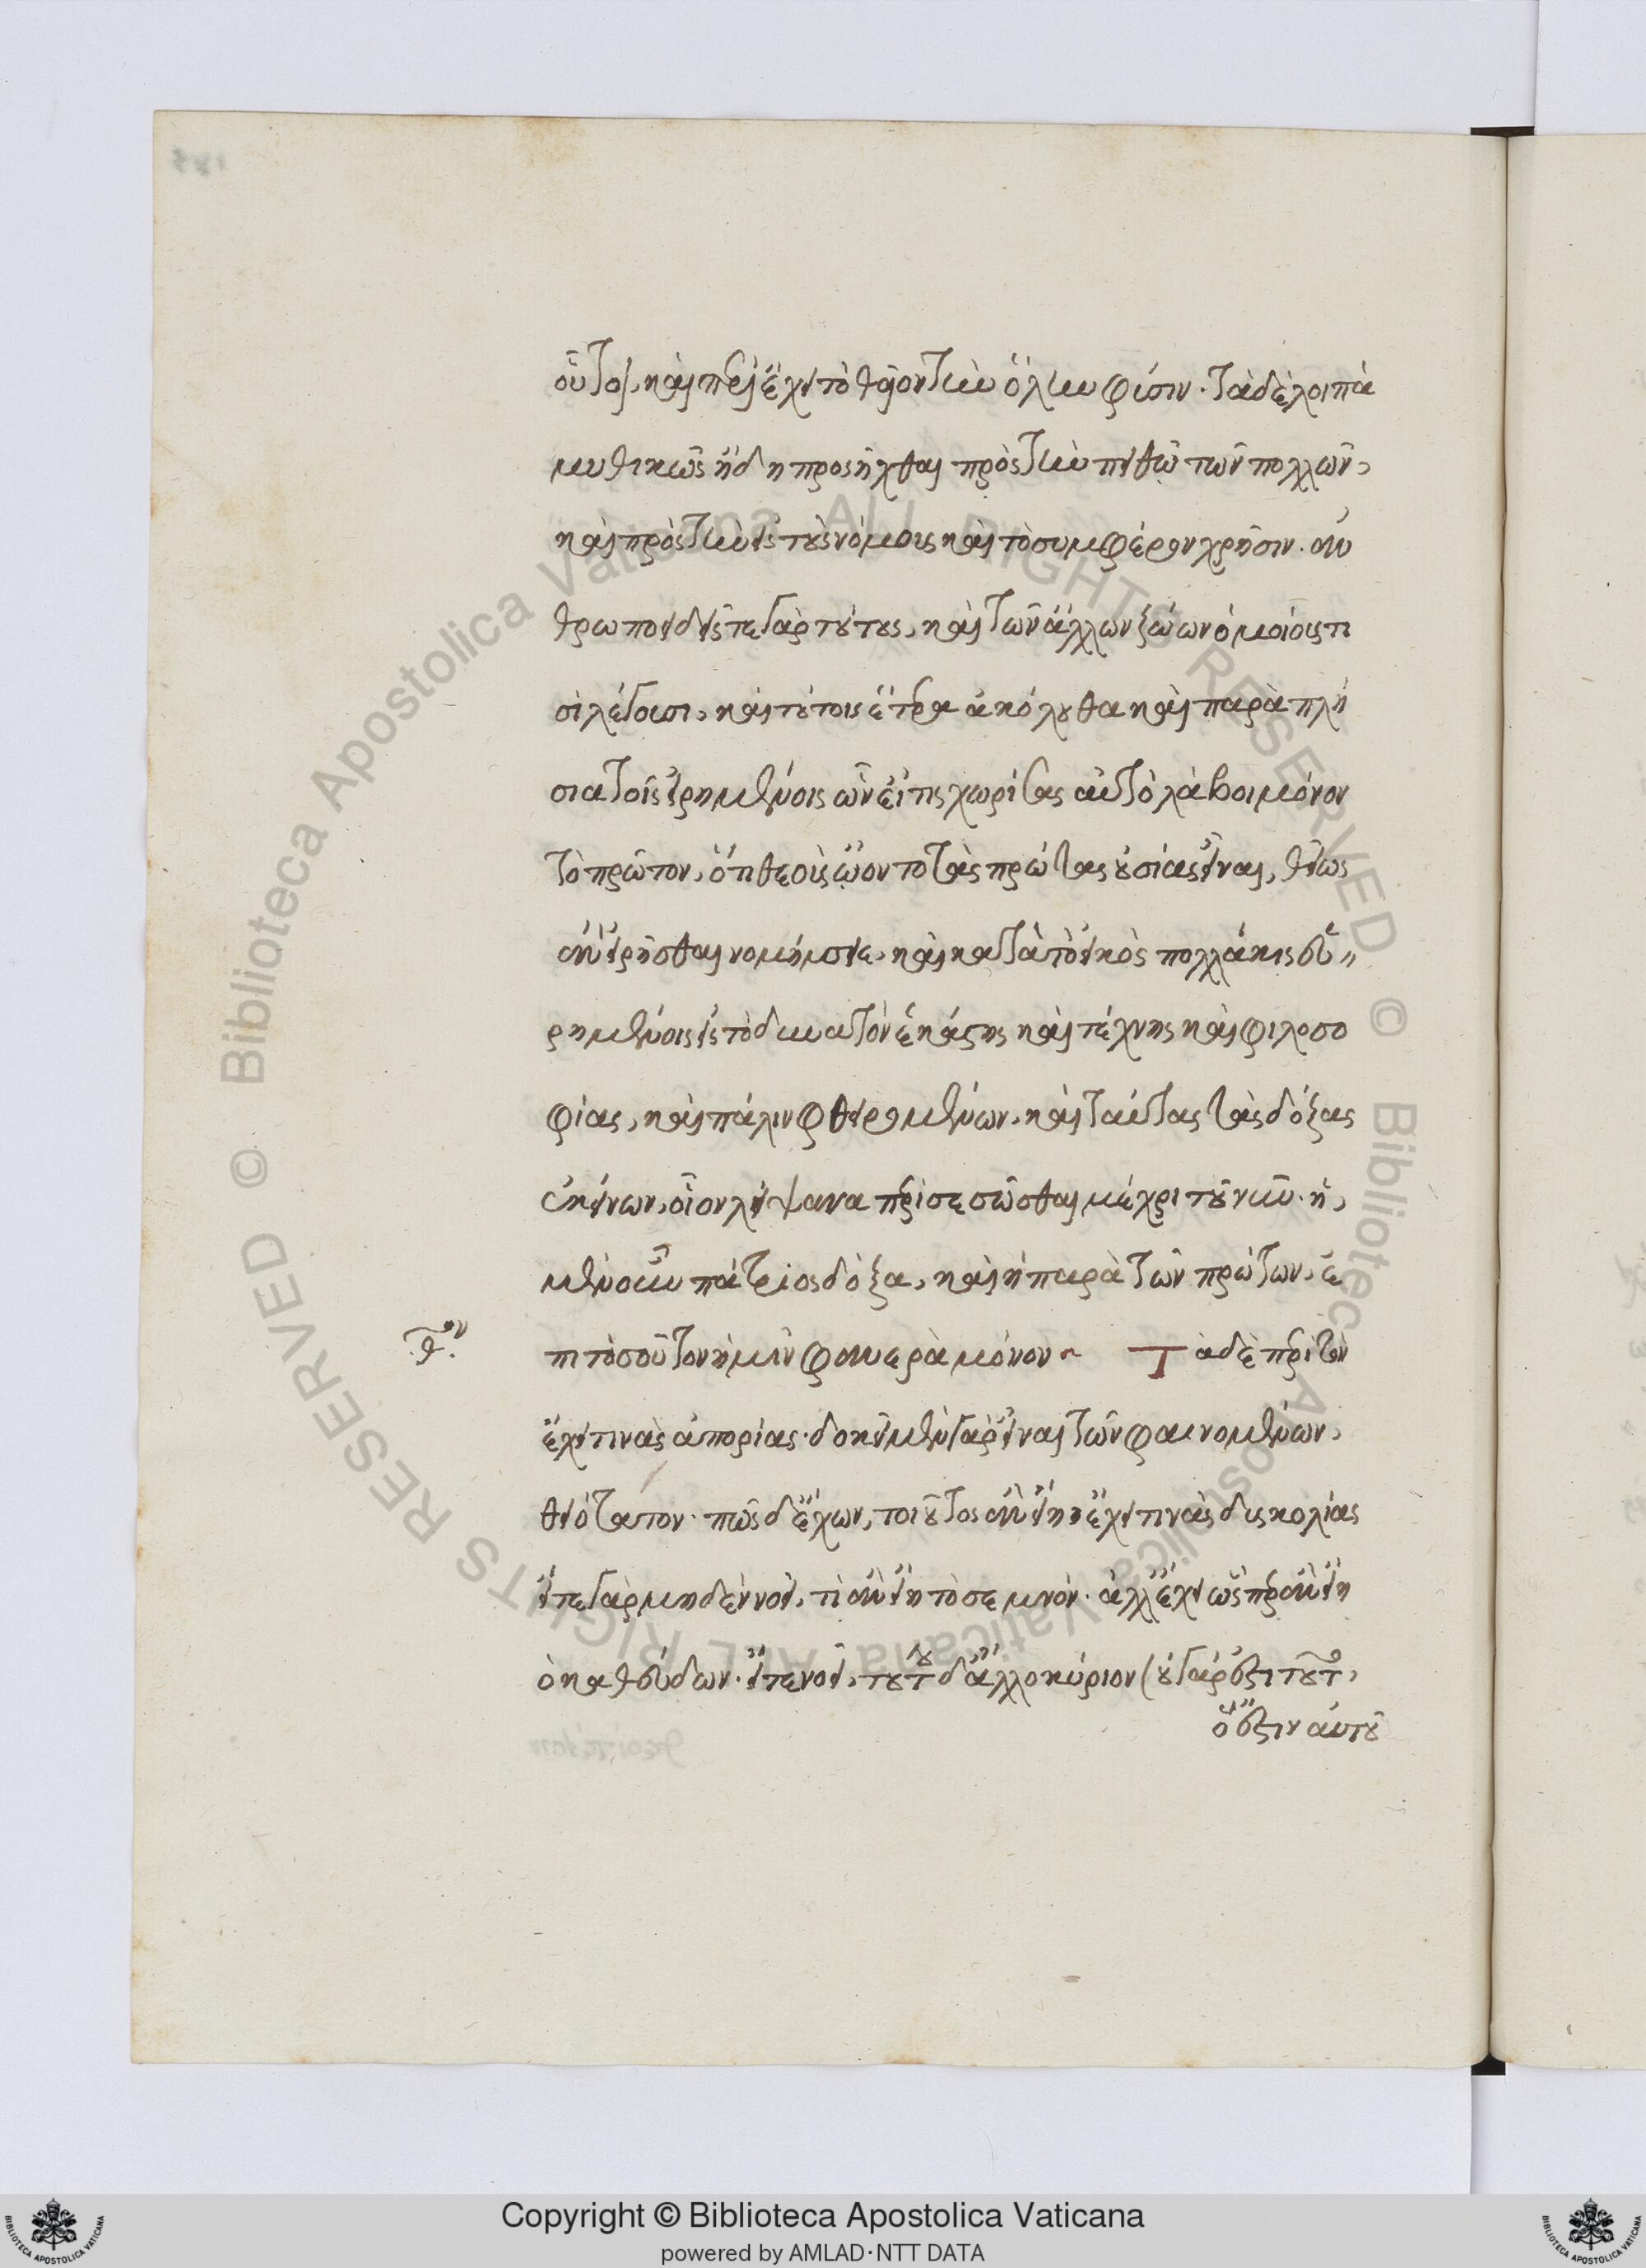 οὗτοι, καὶ περιέχει τὸ θεῖον τὴν ὅλην φύσιν. τὰ δὲ λοιπὰ
μυθικῶς ἤδη προσήχθαι πρὸς τὴν πειθὼ τῶν πολλῶν,
καὶ πρὸς τὴν εἰς τοὺς νόμους καὶ τὸ συμφέρον χρῆσιν. ἀν
θρωποειδεῖς τε γὰρ τούτους, καὶ τῶν ἄλλων ζώων ὁμοίους τι
σὶ λέγουσι, καὶ τούτοις ἕτερα ἀκόλουθα καὶ παραπλή
σια τοῖς εἰρημένοις ὧν εἴ τις χωρίσας αὐτὸ λάβοι μόνον
τὸ πρῶτον, ὅτι θεοὺς ᾤοντο τὰς πρώτας οὐσίας εἶναι, θείως
ἂν εἰρῆσθαι νομίσειε, καὶ κατὰ τὸ εἰκὸς πολλάκις εὑ
ρημένοις εἰς τὸ δυνατὸν ἑκάστης καὶ τέχνης καὶ φιλοσο
φίας, καὶ πάλιν φθειρομένων, καὶ ταύτας τὰς δόξας
ἐκείνων, οἷον λείψανα περισεσῶσθαι μέχρι τοῦ νῦν. ἡ
μὲν οὖν πάτριος δόξα, καὶ ἡ παρὰ τῶν πρώτων, ἐ
πὶ τοσοῦτον ἡμῖν φανερὰ μόνον Τὰ δὲ περὶ τὸν
ἔχει τινὰς ἀπορίας. δοκεῖ μὲν γὰρ εἶναι τῶν φαινομένων,
θειότατον. πῶς δ' ἔχων, τοιοῦτος ἂν εἴη, ἔχει τινὰς δυσκολίας
εἴτε γὰρ μηδὲν νοεῖ, τί ἂν εἴη τὸ σεμνόν. ἀλλ' ἔχει ὥσπερ ἂν εἴη
ὁ καθεύδων. εἴτε νοεῖ, τούτου δ' ἄλλο κύριον (οὐ γάρ ἐστι τοῦτο,
ὅ ἐστιν αὐτοῦ
Copyright © Biblioteca Apostolica Vaticana
powered by AMLAD·NTT DATA
© Biblioteca Apostolica Vaticana ALL RIGHTS RESERVED © Biblioteca Apostolica Vaticana ALL RIGHTS RESERVED